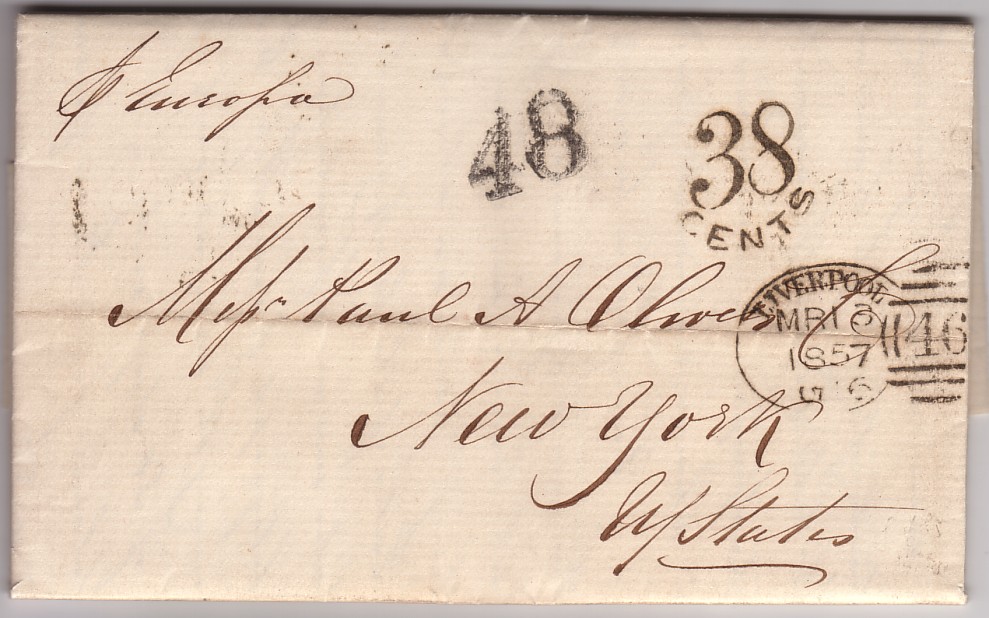 ⅌ Europa
48
38
CENTS
Messrs Paul A Oliver
LIVERPOOL
MR
1857
466
New York
U States